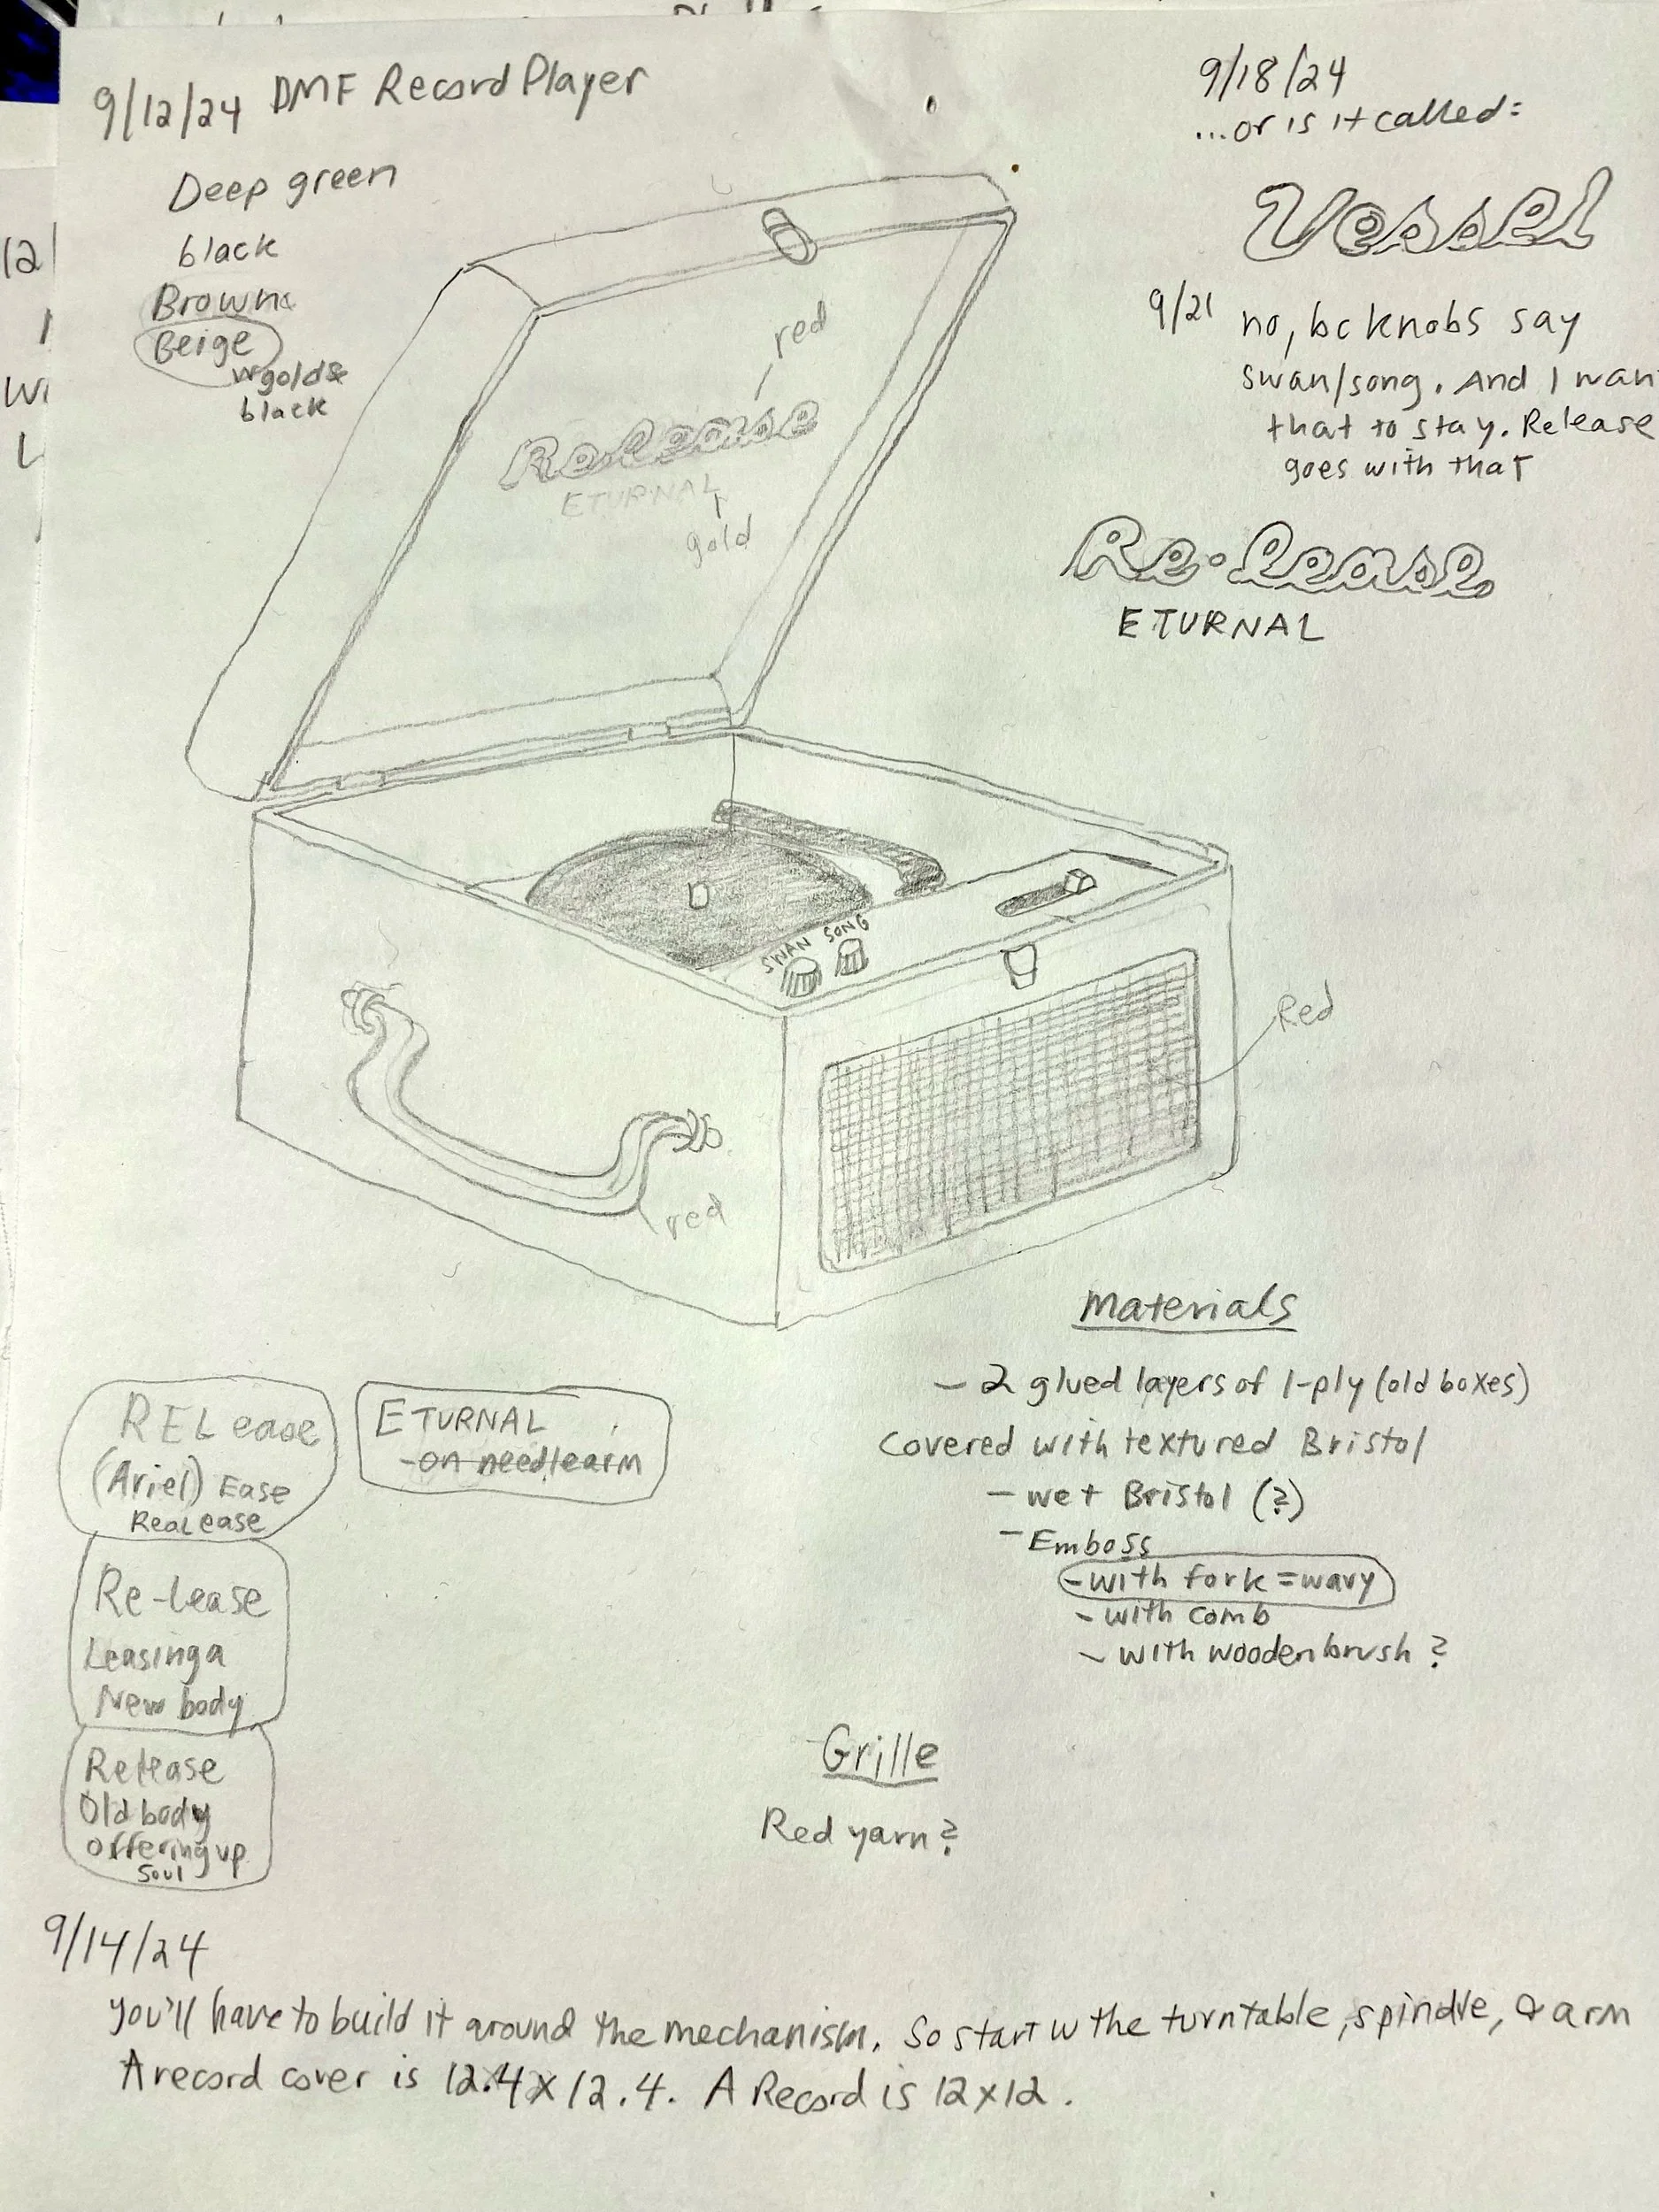 9/12/24 DMF Record Player
Deep green
black
Brown
Beige
w gold &
black
9/18/24
...or is it called:
Vessel
9/21 no, bc knobs say
swan/song. And I wan
that to stay. Release
goes with that
Re·lease
ETURNAL
red
Release
ETURNAL
gold
SWAN SONG
Red
red
Materials
- 2 glued layers of 1-ply (old boxes)
Covered with textured Bristol
- wet Bristol (?)
- Emboss
- with fork = wavy
- with comb
- with wooden brush?
RELease
(Ariel) Ease
ReaLease
ETURNAL
- on needlearm
Re-lease
Leasing a
New body
Release
Old body
offering up
soul
Grille
Red yarn?
9/14/24
You'll have to build it around the mechanism. So start w the turntable, spindle, & arm
A record cover is 12.4 x 12.4. A Record is 12 x 12.